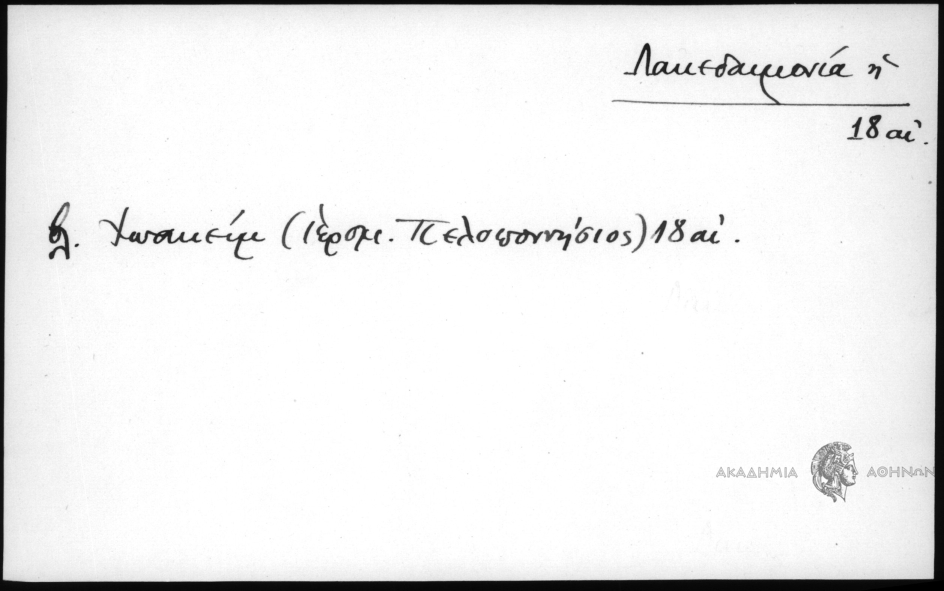 Λακεδαιμονία ἡ
18 αἰ.
βλ. Ἰωακείμ (Ἱερομ. Πελοποννήσιος) 18 αἰ.
ΑΚΑΔΗΜΙΑ ΑΘΗΝΩΝ